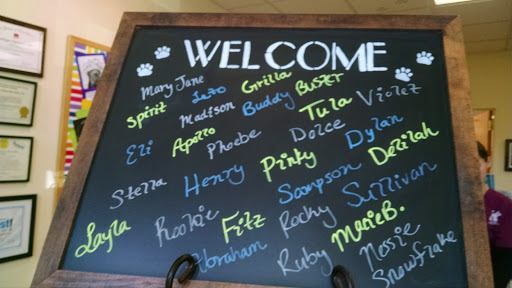 WELCOME
Mary Jane Grilla
Spirit Lazo Madison Buddy BUSTER
Eli Apollo Phoebe Dolce Tula Violet
Stella Henry Pinky Dylan Delilah
Layla Rookie Fitz Sampson Sullivan
Abraham Rocky Marie B.
Ruby Nessie
Snowflake